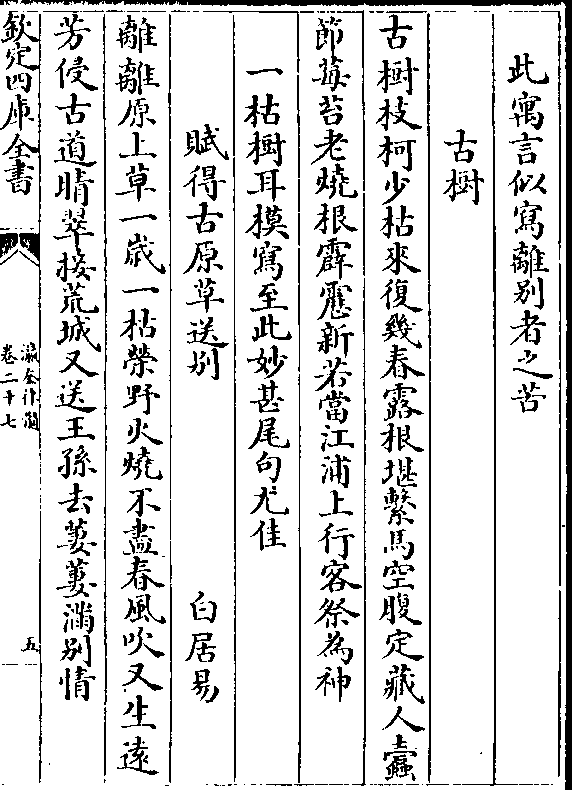 此寓言似寫離别者之苦
古樹
古樹枝柯少枯來復幾春露根堪繫馬空腹定藏人蠧
節莓苔老燒根霹靂新若當江浦上行客祭為神
一枯樹耳模寫至此妙甚尾句尤佳
賦得古原草送别 白居易
離離原上草一歲一枯榮野火燒不盡春風吹又生逺
芳侵古道晴翠接荒城又送王孫去萋萋滿别情
欽定四庫全書
瀛奎律髓
卷二十七
五